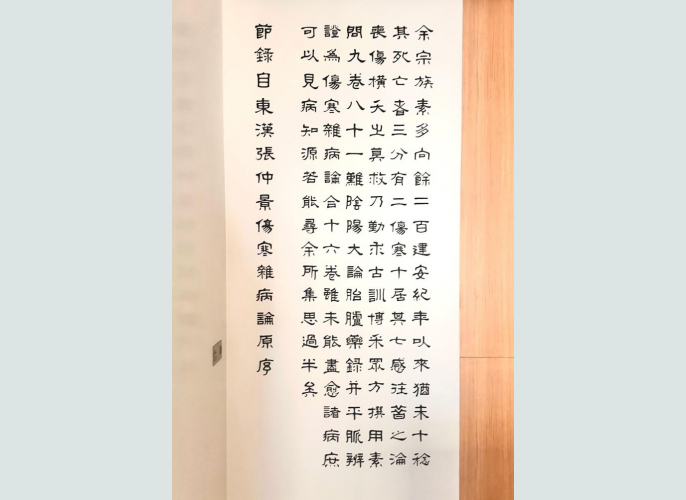 余宗族素多向餘二百建安紀年以來猶未十稔
其死亡者三分有二傷寒十居其七感往昔之淪
喪傷橫夭之莫救乃勤求古訓博采眾方撰用素
問九卷八十一難陰陽大論胎臚藥錄并平脈辨
證為傷寒雜病論合十六卷雖未能盡愈諸病庶
可以見病知源若能尋余所集思過半矣
節錄自東漢張仲景傷寒雜病論原序